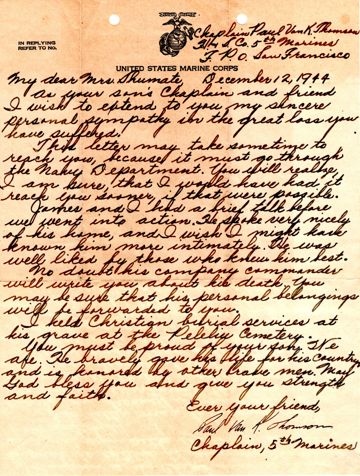 IN REPLYING
REFER TO NO.
Chaplain Paul Van K. Thomson
H & S Co. 5th Marines
F.P.O. San Francisco
UNITED STATES MARINE CORPS
My dear Mrs. Shumate, December 12, 1944
As your son's Chaplain and friend
I wish to extend to you my sincere
personal sympathy in the great loss you
have suffered.
This letter may take sometime to
reach you, because it must go through
the Navy Department. You will realize,
I am sure, that I would have had it
reach you sooner, if that were possible.
and I had a brief talk before
we went into action. He spoke very nicely
of his home, and I wish I might have
known him more intimately. He was
well liked by those who knew him best.
No doubt his company commander
will write you about his death. You
may be sure that his personal belongings
will be forwarded to you.
I held Christian burial services at
his grave at the Peleliu Cemetery.
You must be proud of your son. We
are. He bravely gave his life for his country
and is honored by other brave men. May
God bless you and give you strength
and faith.
Ever your friend,
Paul Van K. Thomson
Chaplain, 5th Marines